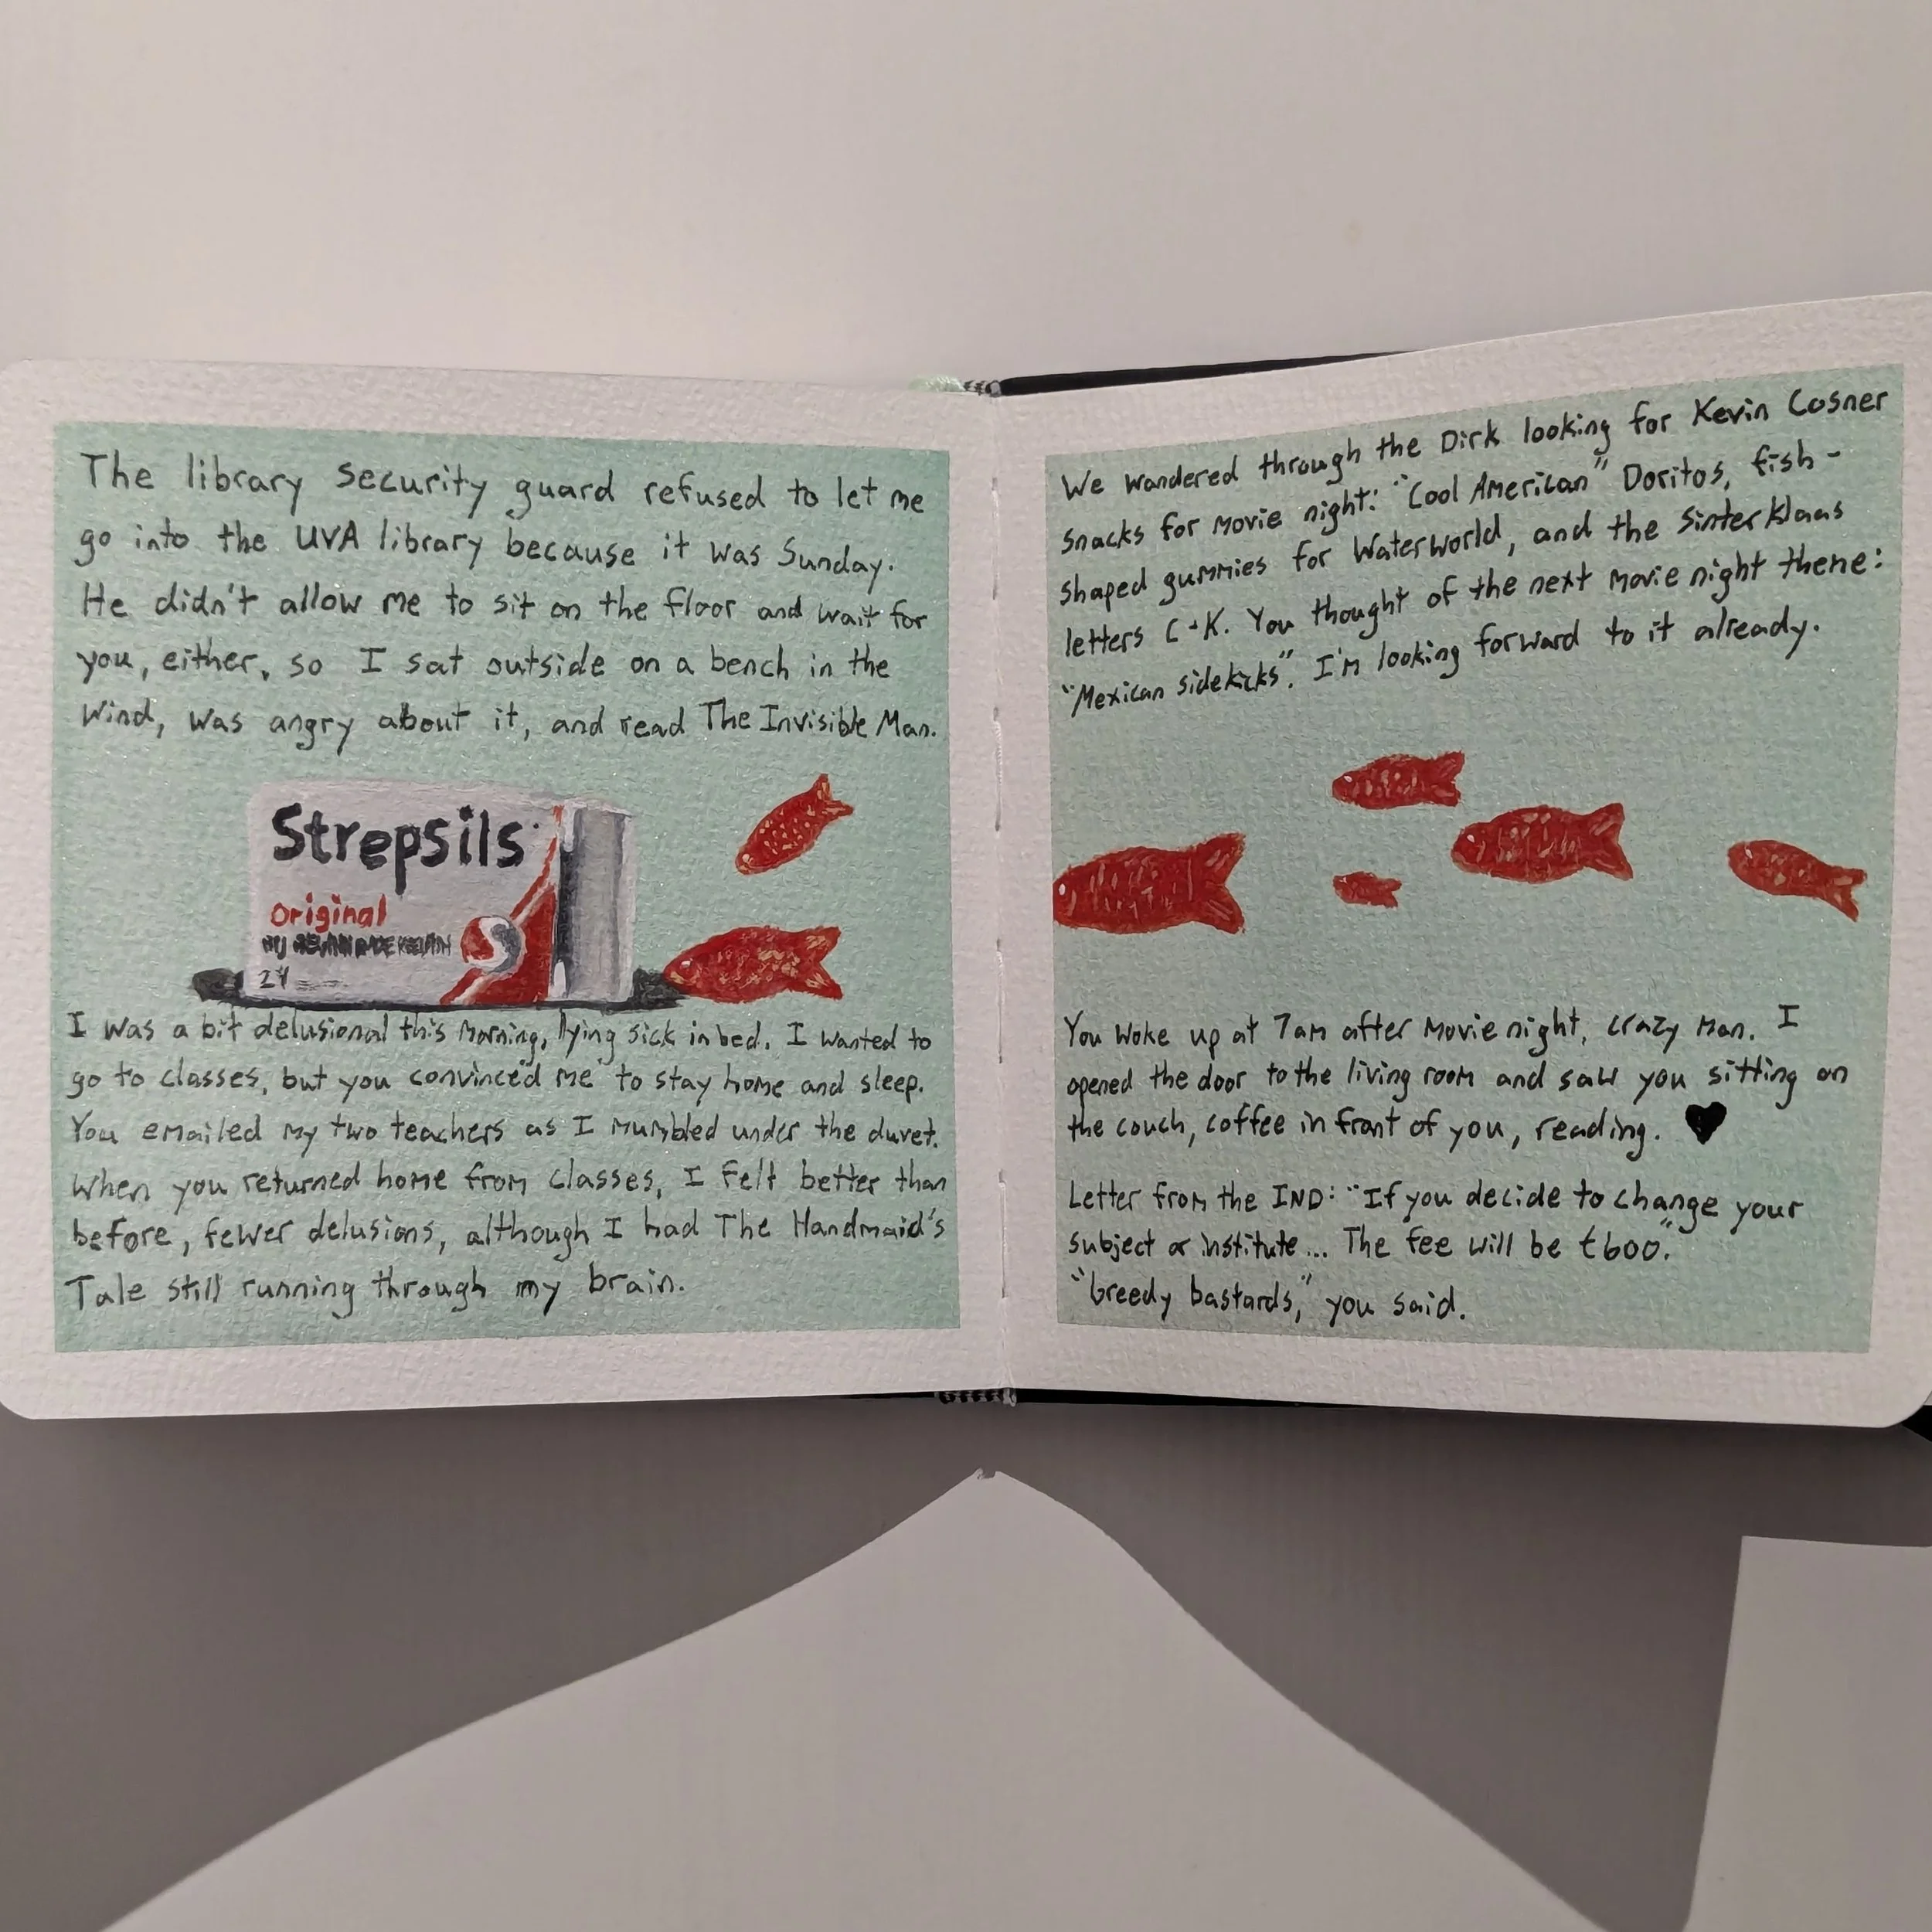 The library security guard refused to let me
go into the UVA library because it was Sunday.
He didn't allow me to sit on the floor and wait for
you, either, so I sat outside on a bench in the
wind, was angry about it, and read The Invisible Man.
Strepsils
Original
24
I was a bit delusional this morning, lying sick in bed. I wanted to
go to classes, but you convinced me to stay home and sleep.
You emailed my two teachers as I mumbled under the duvet.
When you returned home from classes, I felt better than
before, fewer delusions, although I had The Handmaid's
Tale still running through my brain.
We wandered through the Dirk looking for Kevin Cosner
snacks for movie night: "Cool American" Doritos, fish-
shaped gummies for Waterworld, and the Sinterklaas
letters C + K. You thought of the next movie night theme:
"Mexican sidekicks". I'm looking forward to it already.
You woke up at 7am after movie night, crazy man. I
opened the door to the living room and saw you sitting on
the couch, coffee in front of you, reading. ♥
Letter from the IND: "If you decide to change your
subject or institute... The fee will be €600."
"Greedy bastards," you said.